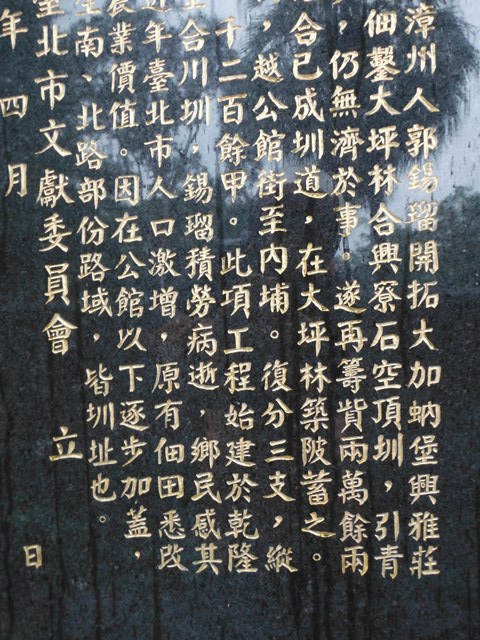 漳州人郭錫瑠開拓大加蚋堡興雅莊
佃鑿大坪林合興寮石空頂圳，引青
，仍無濟於事。遂再籌貲兩萬餘兩
合已成圳道，在大坪林築陂蓄之。
，越公館街至內埔。復分三支，縱
千二百餘甲。此項工程始建於乾隆
合川圳，錫瑠積勞病逝，鄉民感其
近年臺北市人口激增，原有佃田悉改
農業價值。因在公館以下逐步加蓋，
生南、北路部份路域，皆圳址也。
臺北市文獻委員會 立
年 四月 日